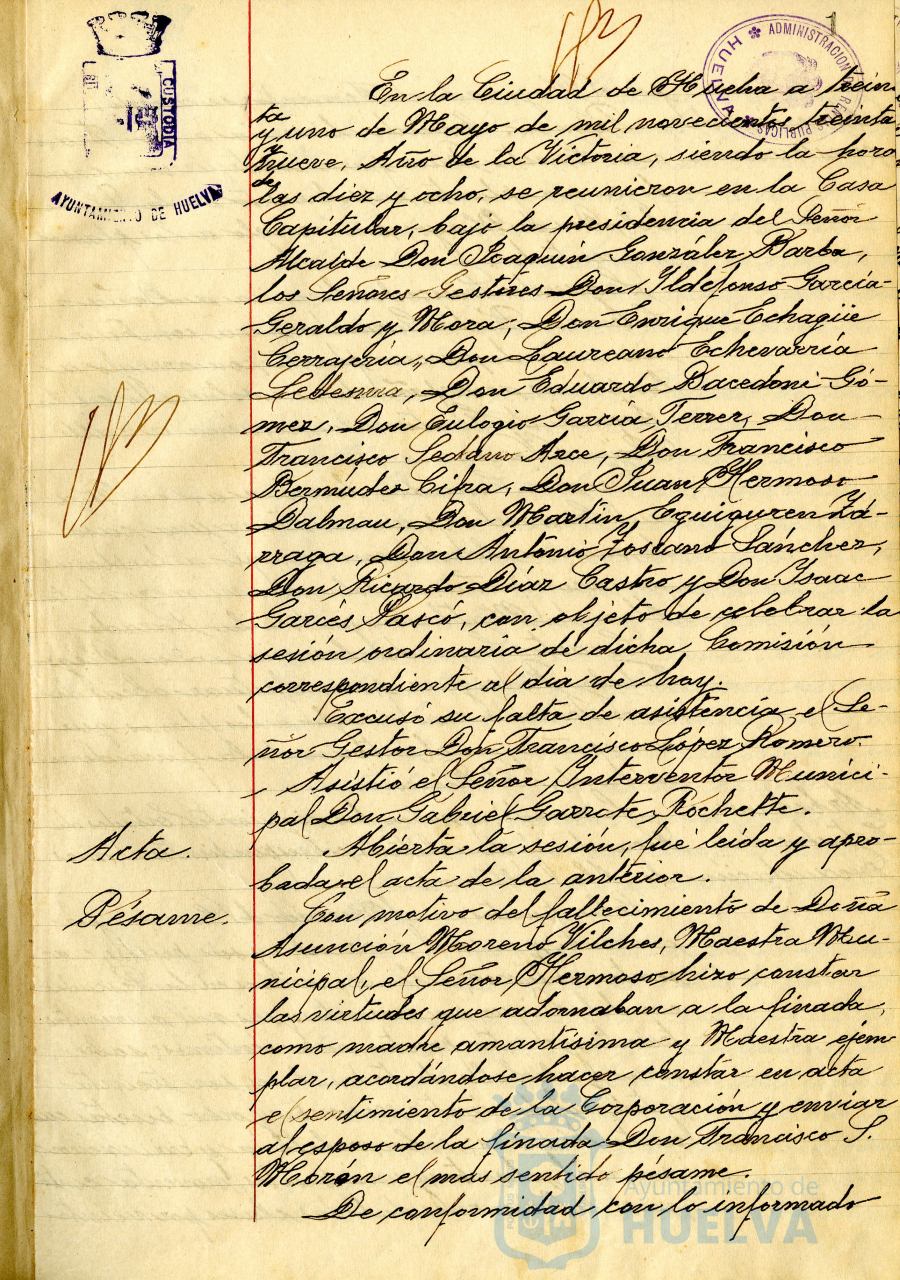 1
ADMINISTRACION DE RENTAS PUBLICAS
HUELVA
CUSTODIA
AYUNTAMIENTO DE HUELVA
En la Ciudad de Huelva a trein-
ta
y uno de Mayo de mil novecientos treinta
y
nueve, Año de la Victoria, siendo la hora
de
las diez y ocho, se reunieron en la Casa
Capitular, bajo la presidencia del Señor
Alcalde Don Joaquín González Barba,
los Señores Gestores Don Ildefonso García-
Geraldo y Mora, Don Enrique Echagüe
Cerrajería, Don Laureano Echevarría
Ledesma, Don Eduardo Bacedoni Gó-
mez, Don Eulogio García Ferrer, Don
Francisco Sedano Arce, Don Francisco
Bermúdez Cifra, Don Juan Hermoso
Dalmau, Don Martín Eguiguren Zá-
rraga, Don Antonio Toscano Sánchez,
Don Ricardo Díaz Castro y Don Isaac
Garcés Pascó, con objeto de celebrar la
sesión ordinaria de dicha Comisión
correspondiente al dia de hoy.
Excusó su falta de asistencia el Se-
ñor Gestor Don Francisco López Romero.
Asistió el Señor Interventor Munici-
pal Don Gabriel Garrote Rochette.
Acta.
Abierta la sesión, fué leída y apro-
bada el acta de la anterior.
Pésame.
Con motivo del fallecimiento de Doña
Asunción Moreno Vilches, Maestra Mu-
nicipal, el Señor Hermoso hizo constar
las virtudes que adornaban a la finada,
como madre amantísima y Maestra ejem-
plar, acordándose hacer constar en acta
el sentimiento de la Corporación y enviar
al esposo de la finada Don Francisco S.
Morán el mas sentido pésame.
De conformidad con lo informado
Ayuntamiento de
HUELVA